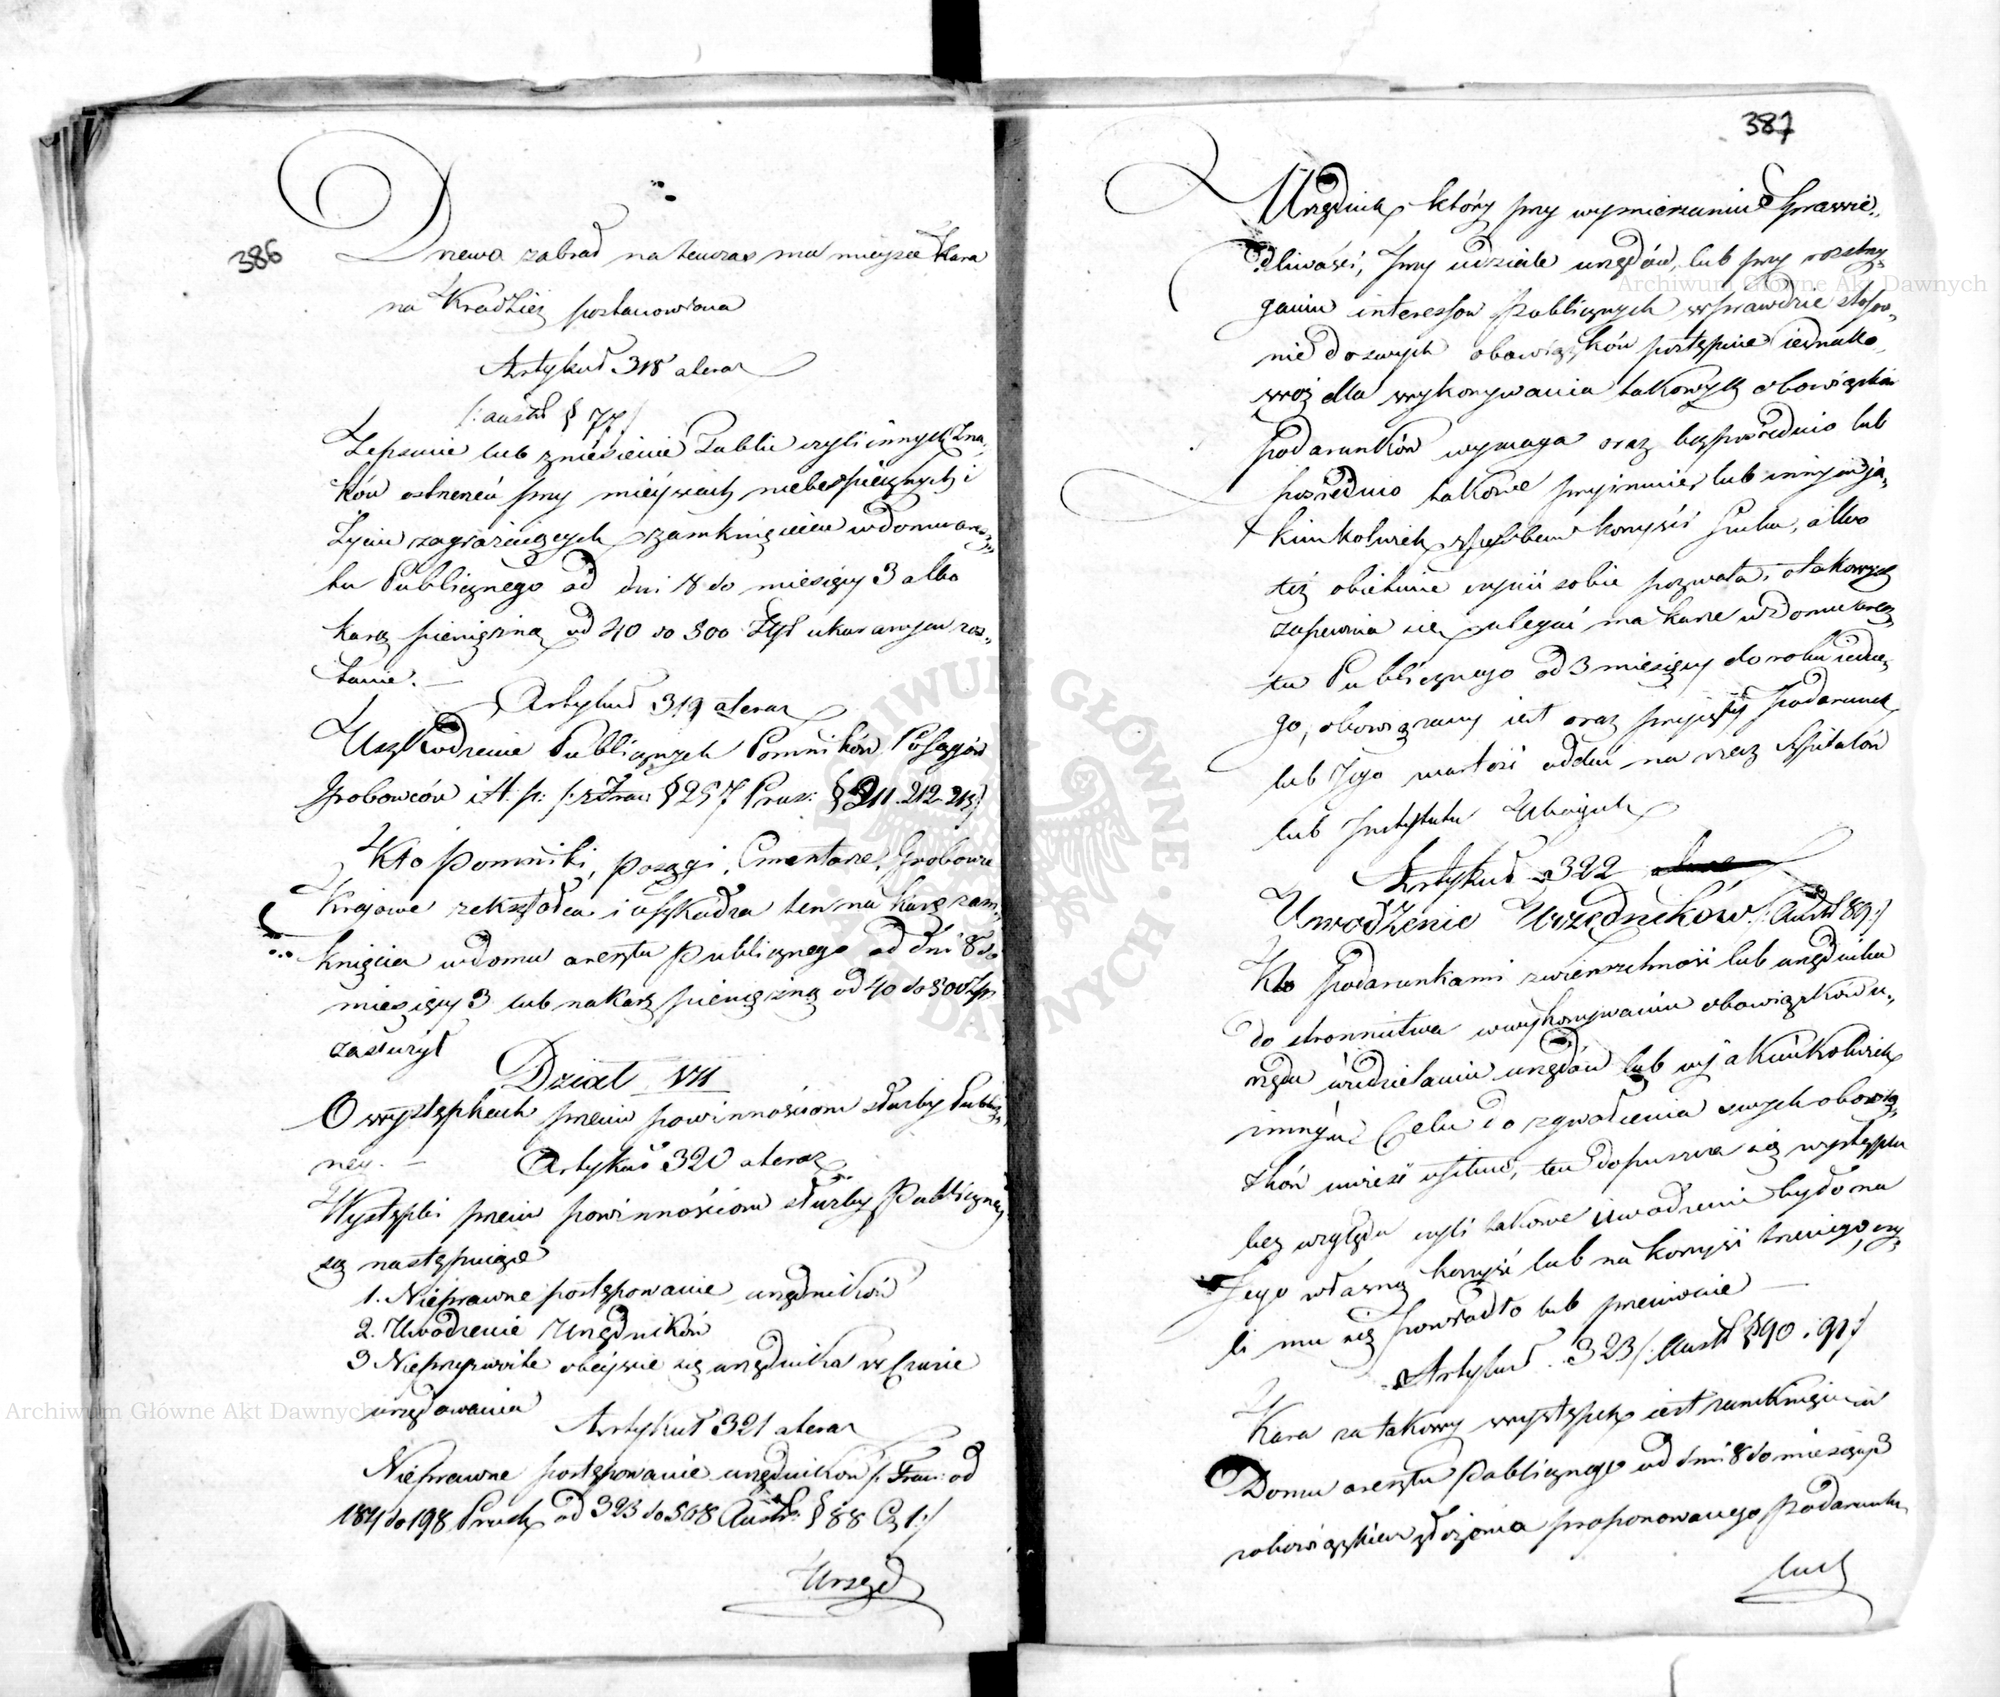 386
Drzewa zabrał na tenczas ma miejsce Kara
na Kradzież postanowiona
Artykuł 318 aleraz
/: austr § 77 /
Zepsucie lub zniesienie Tablic czyli innych Zna„
ków ostrzeżeń przy miejscach niebespiecznych i
Życiu zagrażających zamknięciem w domu aresz„
tu Publicznego od dni 8 do miesięcy 3 albo
karą pieniężną od 40 do 500 Złp ukaranym zos„
tanie. —
Artykuł 319 aleraz
Uszkodzenie Publicznych Pomników Posągów
Grobowców i t: p: /: Fran: § 257 Prus: § 211. 212. 213 /
Kto pomniki, posągi, Cmentarze, Grobowce
Krajowe zekształca i uszkadza ten na karę zam„
knięcia w domu aresztu publicznego od dni 8 do
miesięcy 3 lub na karę pieniężną od 40 do 500 Złp
zasłużył
Dział VII
O występkach przeciw powinnościom służby Publicz„
ney. —
Artykuł 320 aleraz
Występki przeciw powinnościom służby Publiczney
są następujące
1. Nieprawne postępowanie urzędników
2. Uwodzenie Urzędników
3 Nieprzyzwoite obejście się urzędnika w Czasie
urzędowania
Artykuł 321 aleraz
Nieprawne postępowanie urzędników /: Fran: od
184 do 198 Prusk od 323 do 508 Austr: § 88 Cz 1:/
Urzęd
387
Urzędnik który przy wymierzaniu Sprawie„
dliwości, przy udziale urzędów, lub przy rozstrzy„
ganiu interessów Publicznych wprawdzie stosow„
nie do swych obowiązków postępuie iednako„
woż dla wykonywania takowych obowiązków
podarunków wymaga oraz bezpośrednio lub
pośrednio takowe przyimuie, lub innym ja„
kimkolwiek sposobem korzyści szuka, albo
też obietnice czynić sobie pozwala i otakowych
zapewnia się ulegać ma karze w domu aresz„
tu Publicznego od 3 miesięcy do roku iedne„
go, obowiązany iest oraz przyięty podarunek
lub Jego wartość oddać na rzecz Szpitalów
lub Instytutu Ubogich
Artykuł 322
Uwodzenie Urzędników /: Austr 89:/
Kto podarunkami zwierzchność lub urzędnika
do stronnictwa w wykonywaniu obowiązków u„
rzędu w udzielaniu urzędów lub w jakimkolwiek
innym Celu do zgwałcenia swych obowią„
zków uwieść usiłuie, ten dopuszcza się występku
bez względu czyli takowe Uwodzenie było na
Jego własną korzyść lub na korzyść trzeciego, czy„
li mu się powiodło lub przeciwnie —
Artykuł 323 /: Austr § 90 i 91:/
Kara za takowy występek iest zamknięcie w
Domu aresztu Publicznego od dni 8 do miesięcy 3
z obowiązkiem złożenia proponowanego Podarunku
Archiwum Główne Akt Dawnych
Archiwum Główne Akt Dawnych
ARCHIWUM GŁÓWNE · AKT DAWNYCH ·